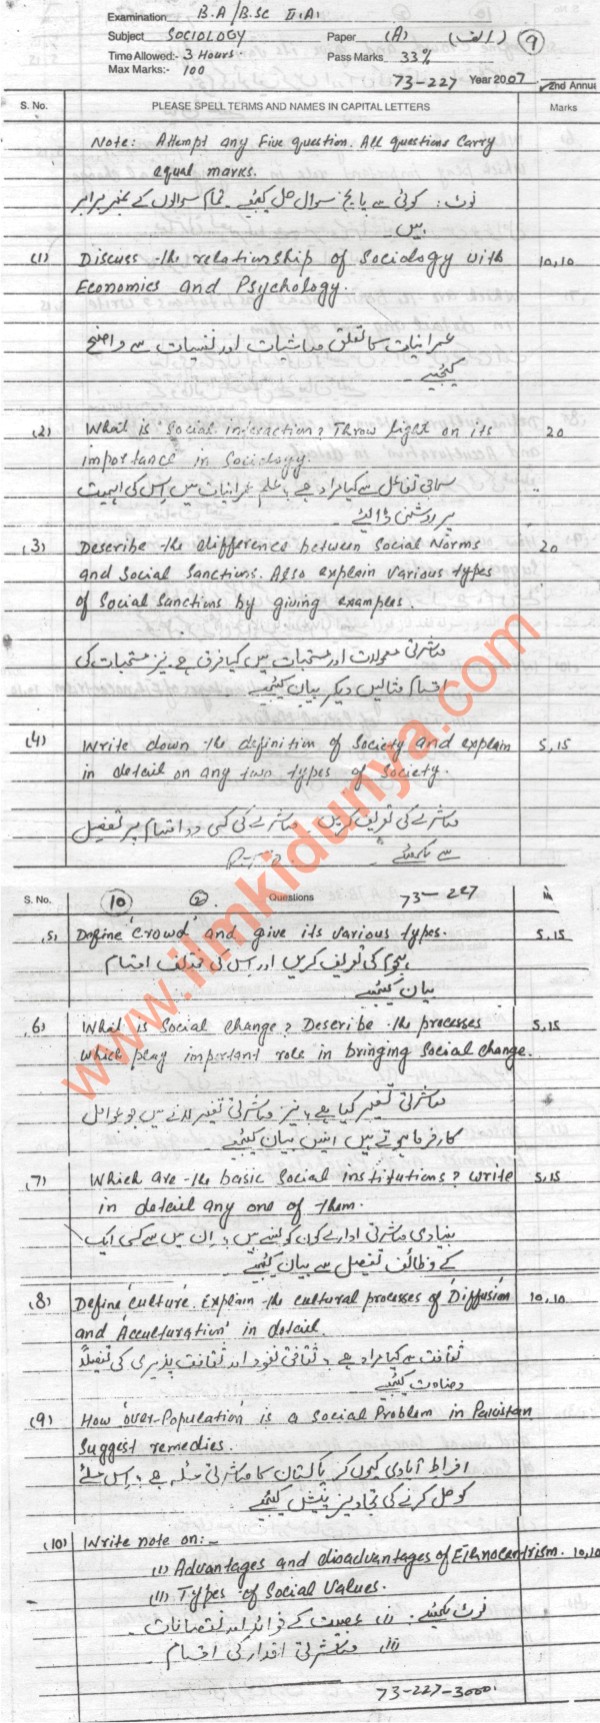 Examination B.A/B.Sc II.A.
Subject SOCIOLOGY Paper (A) (الف) 9
Time Allowed:- 3 Hours. Pass Marks 33%
Max Marks:- 100
73-227 Year 2007 2nd Annual
S. No. PLEASE SPELL TERMS AND NAMES IN CAPITAL LETTERS Marks
Note: Attempt any Five question. All questions Carry
equal marks.
نوٹ: کوئی سے پانچ سوال حل کیجئے۔ تمام سوالوں کے نمبر برابر
ہیں۔
(1) Discuss the relationship of Sociology with 10,10
Economics and Psychology.
عمرانیات کا تعلق معاشیات اور نفسیات سے واضح
کیجئے۔
(2) What is 'Social interaction? Throw light on its 20
importance in Sociology.
سماجی تفاعل سے کیا مراد ہے؟ علم عمرانیات میں اس کی اہمیت
پر روشنی ڈالئے۔
(3) Describe the difference between Social Norms 20
and Social Sanctions. Also explain various types
of Social Sanctions by giving examples.
معاشرتی معمولات اور مستجبات میں کیا فرق ہے۔ نیز مستجبات کی
اقسام مثالیں دیکر بیان کیجئے
(4) Write down the definition of Society and explain 5,15
in detail on any two types of Society.
معاشرے کی تعریف کریں۔ معاشرے کی کسی دو اقسام پر تفصیل
سے لکھئے۔ P.T.O.
S. No. 10 2 Questions 73-227
(5) Define 'Crowd' and give its various types. 5,15
ہجوم کی تعریف کریں اور اس کی مختلف اقسام
بیان کیجئے
(6) What is Social change? Describe the processes 5,15
which play important role in bringing Social change.
معاشرتی تغیر کیا ہے؟ نیز معاشرتی تغیر لانے میں جو عوامل
کارفرما ہوتے ہیں انہیں بیان کیجئے۔
(7) Which are the basic Social institutions? write 5,15
in detail any one of them.
بنیادی معاشرتی ادارے کون کونسے ہیں؟ ان میں سے کسی ایک
کے وظائف تفصیل سے بیان کیجئے
(8) Define 'culture'. Explain the cultural processes of 'Diffusion 10,10
and 'Acculturation' in detail.
ثقافت سے کیا مراد ہے؟ ثقافتی نفوذ اور ثقافت پذیری کی تفصیلاً
وضاحت کیجئے
(9) How 'over-Population' is a Social Problem in Pakistan
Suggest remedies.
افراط آبادی کیوں کر پاکستان کا معاشرتی مسئلہ ہے؟ اس مسئلے
کو حل کرنے کی تجاویز پیش کیجئے
(10) Write note on:-
(I) Advantages and disadvantages of Ethnocentrism. 10,10
(II) Types of Social Values.
نوٹ لکھیئے: (i) عصبیت کے فوائد اور نقصانات۔
(ii) معاشرتی اقدار کی اقسام۔
73-227-3000.
www.ilmkidunya.com